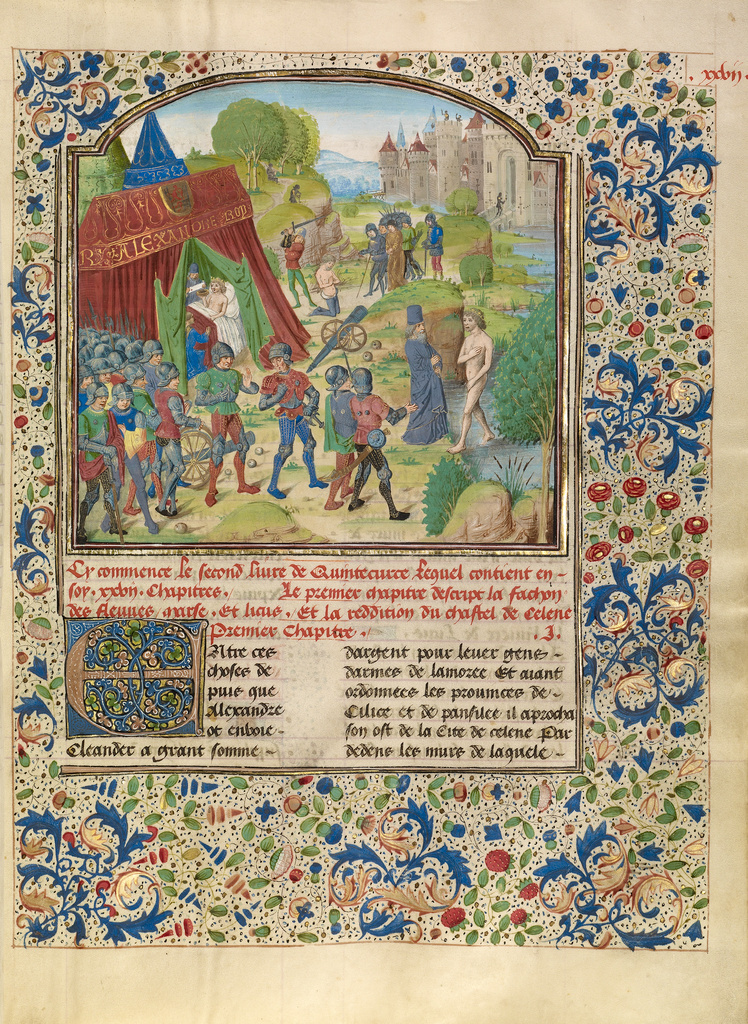 . xxvij .
REX ALEXANDRE
Cy commence le second livre de Quintecurce lequel contient en-
soy .xxviij. Chapitres. Le premier chapitre descript la fachon
des fleuves marse. Et licus. Et la reddition du chastel de Celene
Premier Chapitre. .I.
Entre ces
choses de
puis que
Alexandre
ot enboie
Cleander a grant somme
dargent pour lever gens
darmes de lamoree Et aiant
ordonnees les provinces de
Cilice et de panfilee il aprocha
son ost de la Cite de celene Par
dedens les murs de laquele